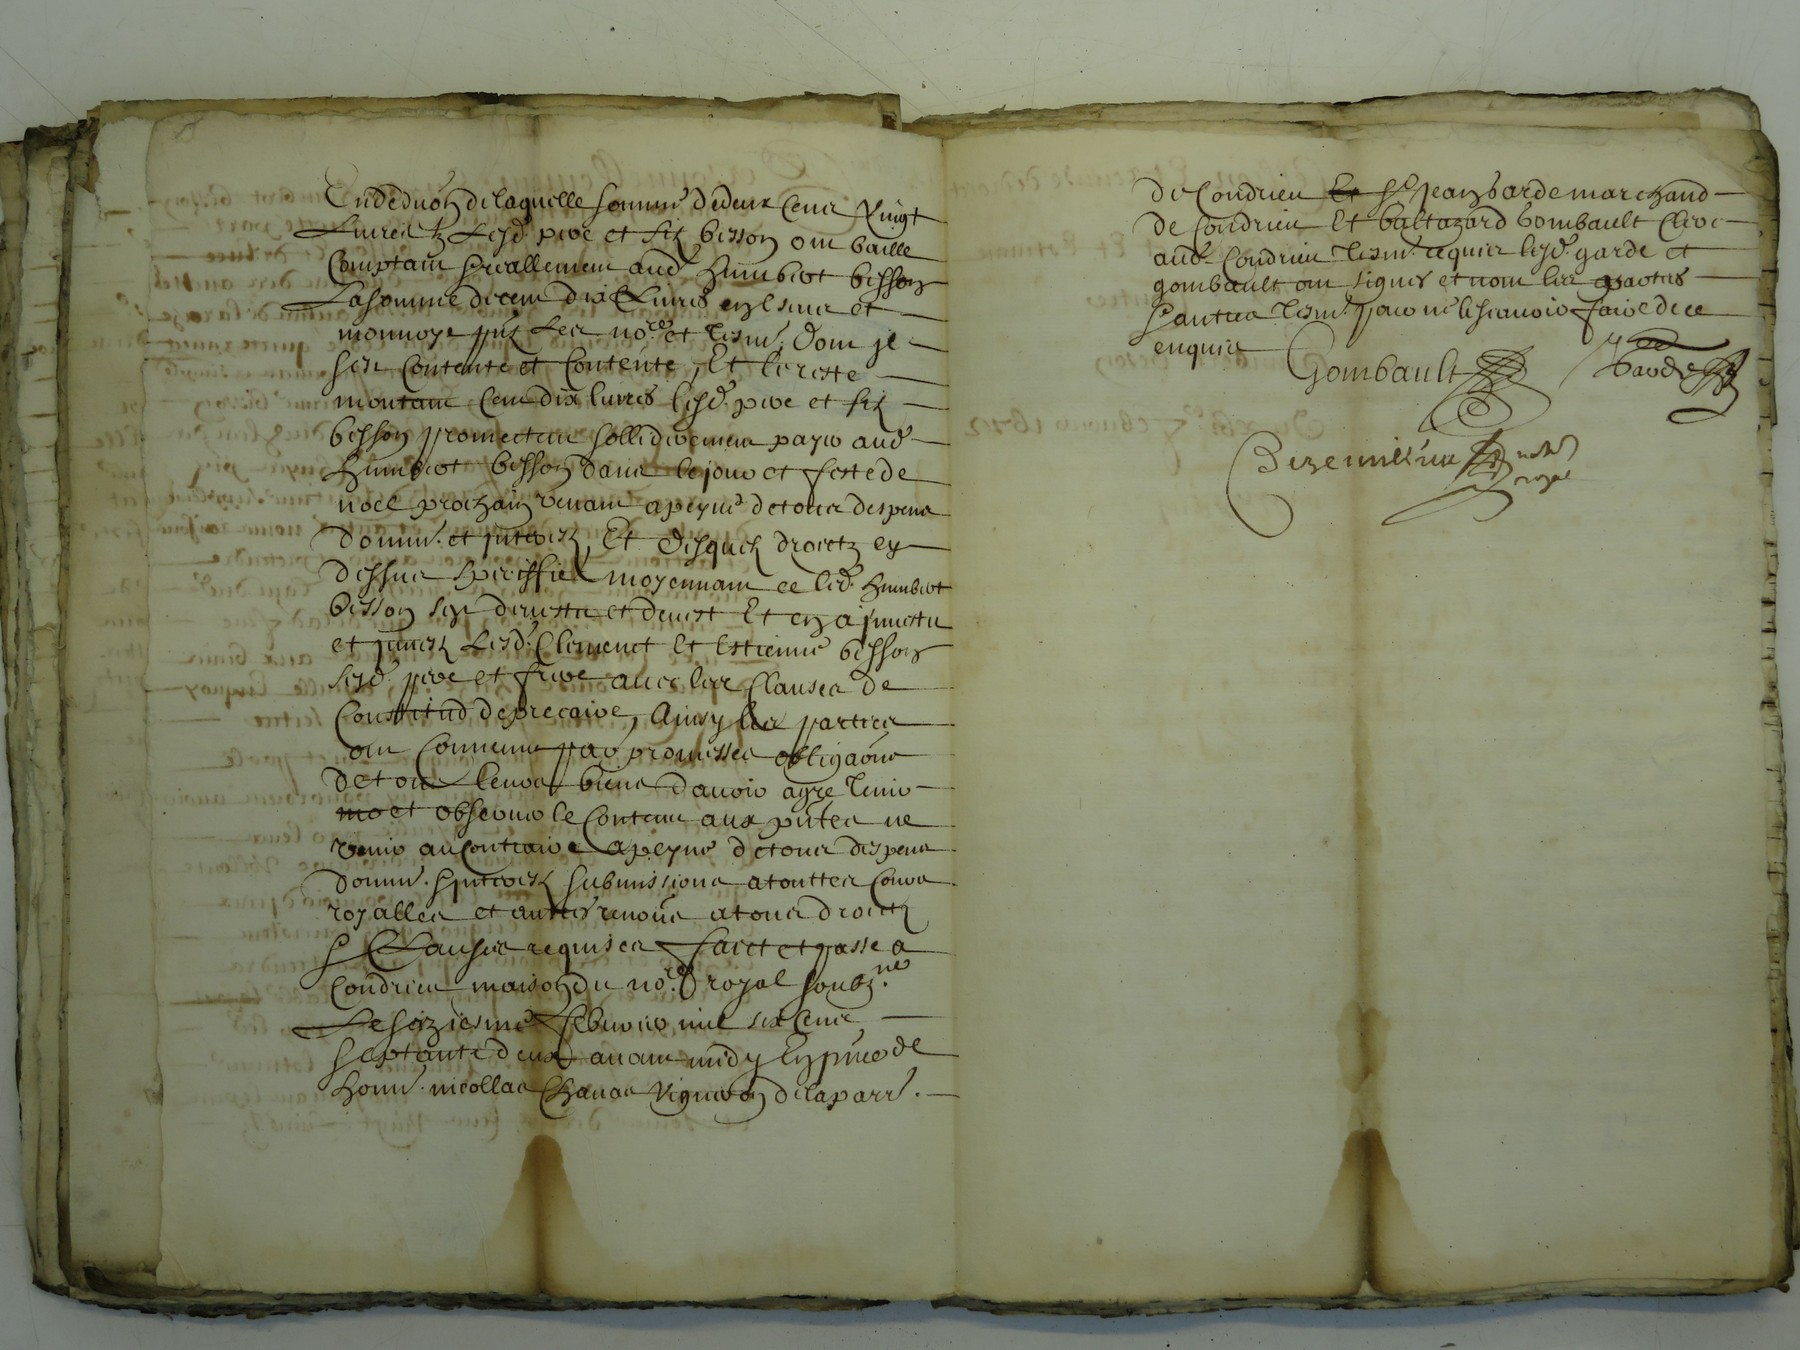 En deduôn de laquelle somme de deux Cens Vingt
Livres tz Lesd. pere et filz bisson ont baille
Comptant preallement aud Humbert bisson
La somme de cent dix Livres en Louis et
monnoye pñs Les no.res et tesm. dont Je
s'est Contente et Contente, Et le reste
montant Cent dix livres lesd. pere et filz
bisson promectent sollidairement payer aud
Humbert bisson dans le jour et feste de
noel prochain venant a peyne de tous despens
domm. et jnterestz, Et desquelz droictz cy
dessus speciffies moyennant ce led. Humbert
bisson sest devestu et devest Et en a jnvestu
et jnvest Lesd. Clement Et Estienne bisson
sesd. pere et frere avec les Clauses de
Constitud de precaire, Ainsy les parties
ont Convenu par promesses obligaõns
de tous leurs biens d'avoir agre Tenir
et observer le Contenu aux pñtes ne
venir au Contraire a peyne de tous despens
domm. jnterestz submissions a touttes Cours
royalles et autres renoñs a tous droictz
& Clauses requises faict et passe a
Condrieu maison du no.re royal soubz.né
Le seiziesme febvrier mil six Cens
septante deux avant midy En pñce de
honn. nicollas Chavas Vigneron de la parr.
de Condrieu Et Sr Jean barde marchand
de Condrieu Et baltazard Gombault Clerc
aud. Condrieu tesm. requis lesd. garde et
gombault ont signes et non les parties
& autres tesm. pour ne le scavoir faire de ce
enquis
Gombault
barde
no.re
royal